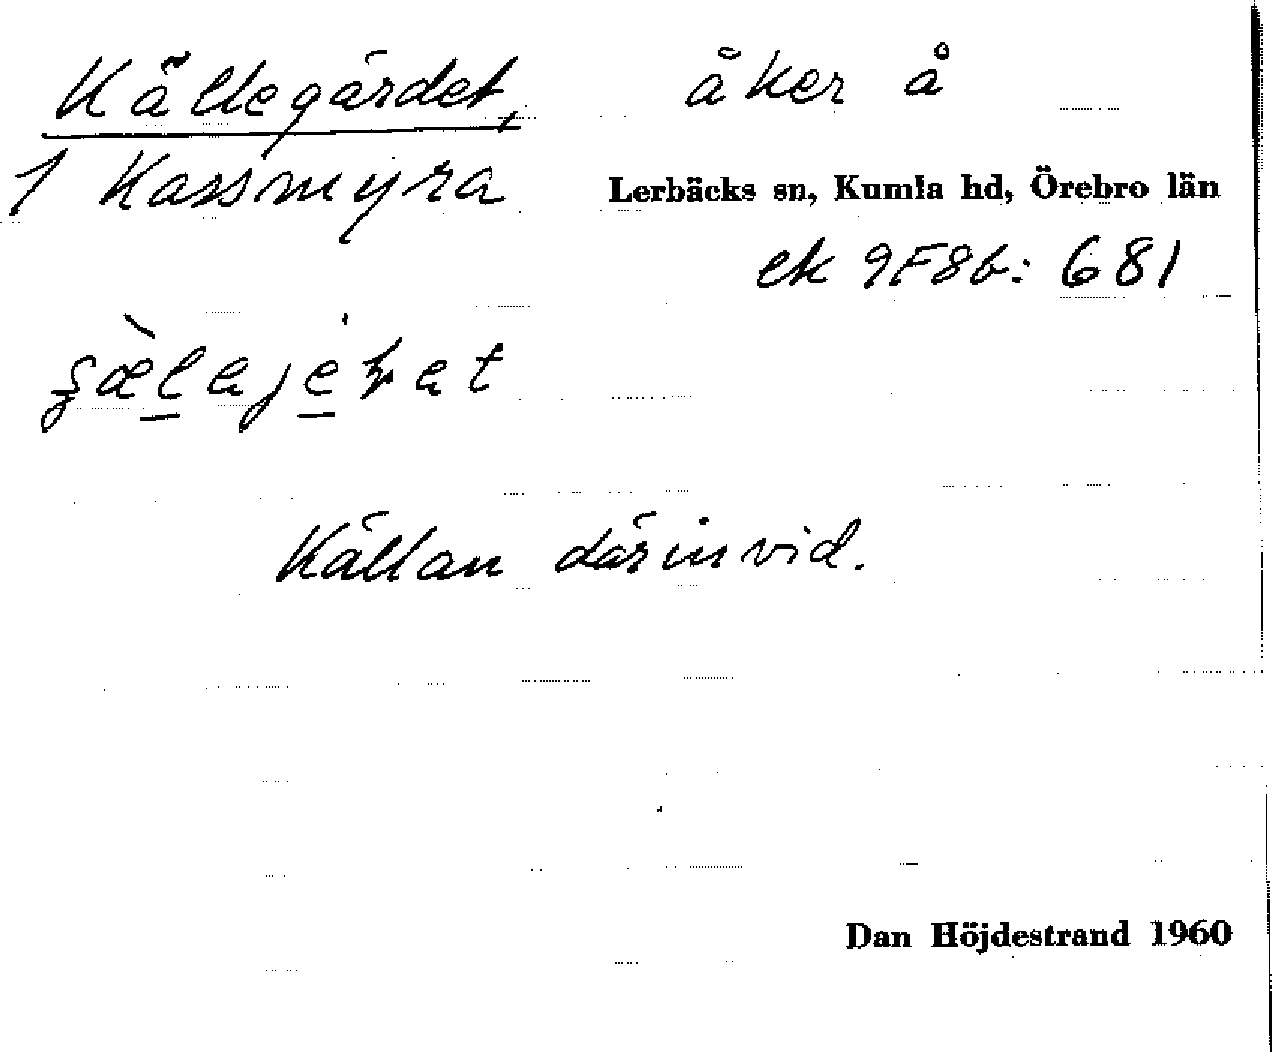 Källegärdet, åker å
1 Kassmyra Lerbäcks sn, Kumla hd, Örebro län
ek 9F8b: 681
Källan därinvid.
Dan Höjdestrand 1960